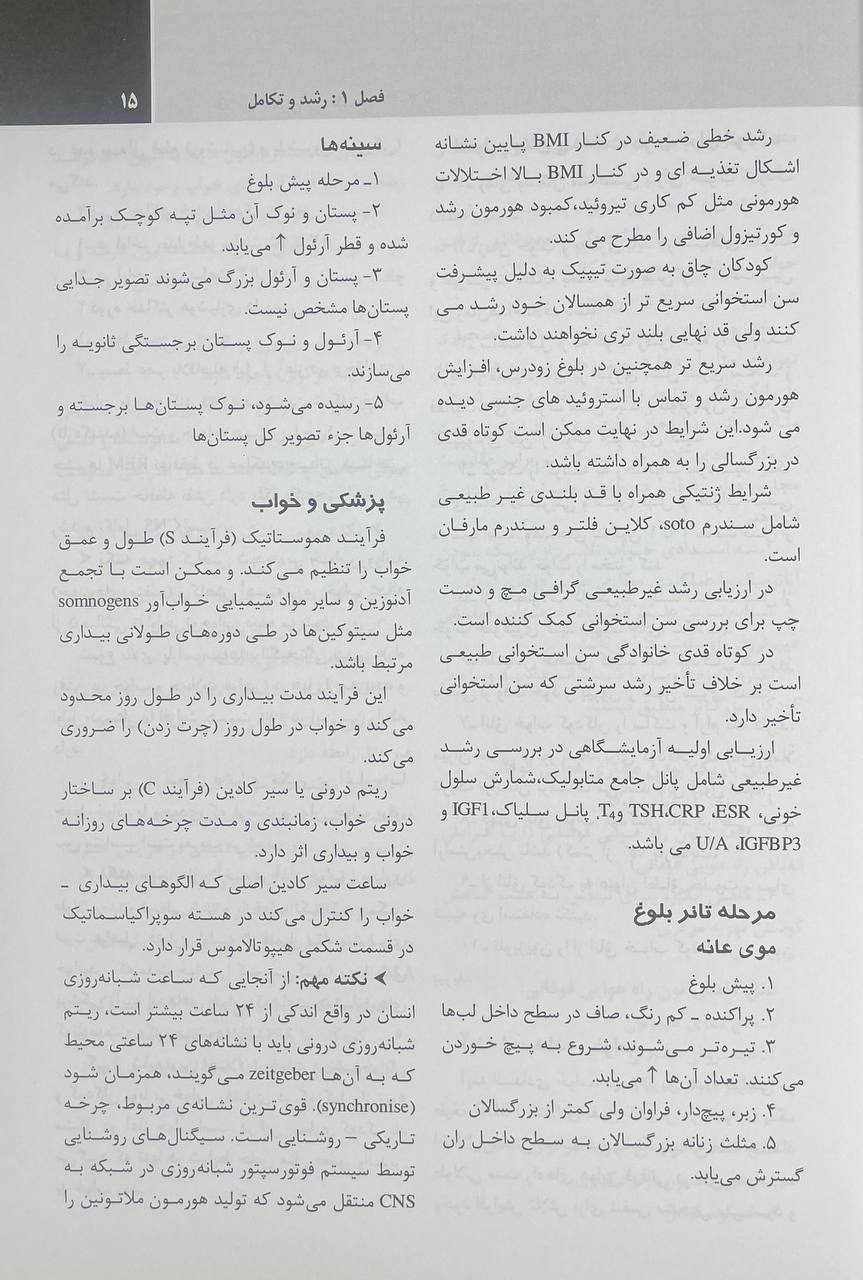 فصل ۱: رشد و تکامل
۱۵
رشد خطی ضعیف در کنار BMI پایین نشانه
اشکال تغذیه ای و در کنار BMI بالا اختلالات
هورمونی مثل کم کاری تیروئید،کمبود هورمون رشد
و کورتیزول اضافی را مطرح می کند.
کودکان چاق به صورت تیپیک به دلیل پیشرفت
سن استخوانی سریع تر از همسالان خود رشد می
کنند ولی قد نهایی بلند تری نخواهند داشت.
رشد سریع تر همچنین در بلوغ زودرس، افزایش
هورمون رشد و تماس با استروئید های جنسی دیده
می شود.این شرایط در نهایت ممکن است کوتاه قدی
در بزرگسالی را به همراه داشته باشد.
شرایط ژنتیکی همراه با قد بلندی غیر طبیعی
شامل سندرم soto، کلاین فلتر و سندرم مارفان
است.
در ارزیابی رشد غیرطبیعی گرافی مچ و دست
چپ برای بررسی سن استخوانی کمک کننده است.
در کوتاه قدی خانوادگی سن استخوانی طبیعی
است بر خلاف تأخیر رشد سرشتی که سن استخوانی
تأخیر دارد.
ارزیابی اولیه آزمایشگاهی در بررسی رشد
غیرطبیعی شامل پانل جامع متابولیک،شمارش سلول
خونی، TSH،CRP ،ESR وT4، پانل سلیاک،IGF1 و
U/A ،IGFBP3 می باشد.
مرحله تانر بلوغ
موی عانه
۱. پیش بلوغ
۲. پراکنده ـ کم رنگ، صاف در سطح داخل لب‌ها
۳. تیره‌تر می‌شوند، شروع به پیچ خوردن
می‌کنند. تعداد آن‌ها ↑ می‌یابد.
۴. زبر، پیچ‌دار، فراوان ولی کمتر از بزرگسالان
۵. مثلث زنانه بزرگسالان به سطح داخل ران
گسترش می‌یابد.
سینه‌ها
۱ـ مرحله پیش بلوغ
۲- پستان و نوک آن مثل تپه کوچک برآمده
شده و قطر آرئول ↑ می‌یابد.
۳- پستان و آرئول بزرگ می‌شوند تصویر جدایی
پستان‌ها مشخص نیست.
۴- آرئول و نوک پستان برجستگی ثانویه را
می‌سازند.
۵- رسیده می‌شود، نوک پستان‌ها برجسته و
آرئول‌ها جزء تصویر کل پستان‌ها
پزشکی و خواب
فرآیند هموستاتیک (فرآیند S) طول و عمق
خواب را تنظیم می‌کند. و ممکن است با تجمع
آدنوزین و سایر مواد شیمیایی خواب‌آور somnogens
مثل سیتوکین‌ها در طی دوره‌های طولانی بیداری
مرتبط باشد.
این فرآیند مدت بیداری را در طول روز محدود
می‌کند و خواب در طول روز (چرت زدن) را ضروری
می‌کند.
ریتم درونی یا سیر کادین (فرآیند C) بر ساختار
درونی خواب، زمانبندی و مدت چرخه‌های روزانه
خواب و بیداری اثر دارد.
ساعت سیر کادین اصلی که الگوهای بیداری ـ
خواب را کنترل می‌کند در هسته سوپراکیاسماتیک
در قسمت شکمی هیپوتالاموس قرار دارد.
➤ نکته مهم: از آنجایی که ساعت شبانه‌روزی
انسان در واقع اندکی از ۲۴ ساعت بیشتر است، ریتم
شبانه‌روزی درونی باید با نشانه‌های ۲۴ ساعتی محیط
که به آن‌ها zeitgeber می‌گویند، همزمان شود
(synchronise). قوی‌ترین نشانه‌ی مربوط، چرخه
تاریکی – روشنایی است. سیگنال‌های روشنایی
توسط سیستم فوتورسپتور شبانه‌روزی در شبکه به
CNS منتقل می‌شود که تولید هورمون ملاتونین را